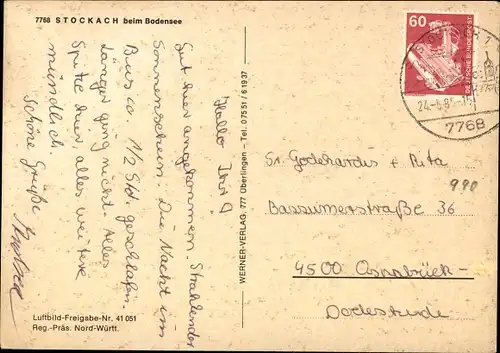 7768 STOCKACH beim Bodensee
Hallo Ihr!
Gut hier angekommen. Strahlender
Sonnenschein. Die Nacht im
Bus ca. 1/2 Std. geschlafen.
Länger ging nicht. Alles
Spitze hier, alles weitere
mündlich
Schöne Grüße
WERNER-VERLAG, 777 Überlingen - Tel. 07551/61937
Luftbild-Freigabe-Nr. 41 051
Reg.-Präs. Nord-Württ.
60
DEUTSCHE BUNDESPOST
24.-5.8
7768
Sr. Godehardus + Rita
990
Bassumerstraße 36
4500 Osnabrück-
Dodesheide